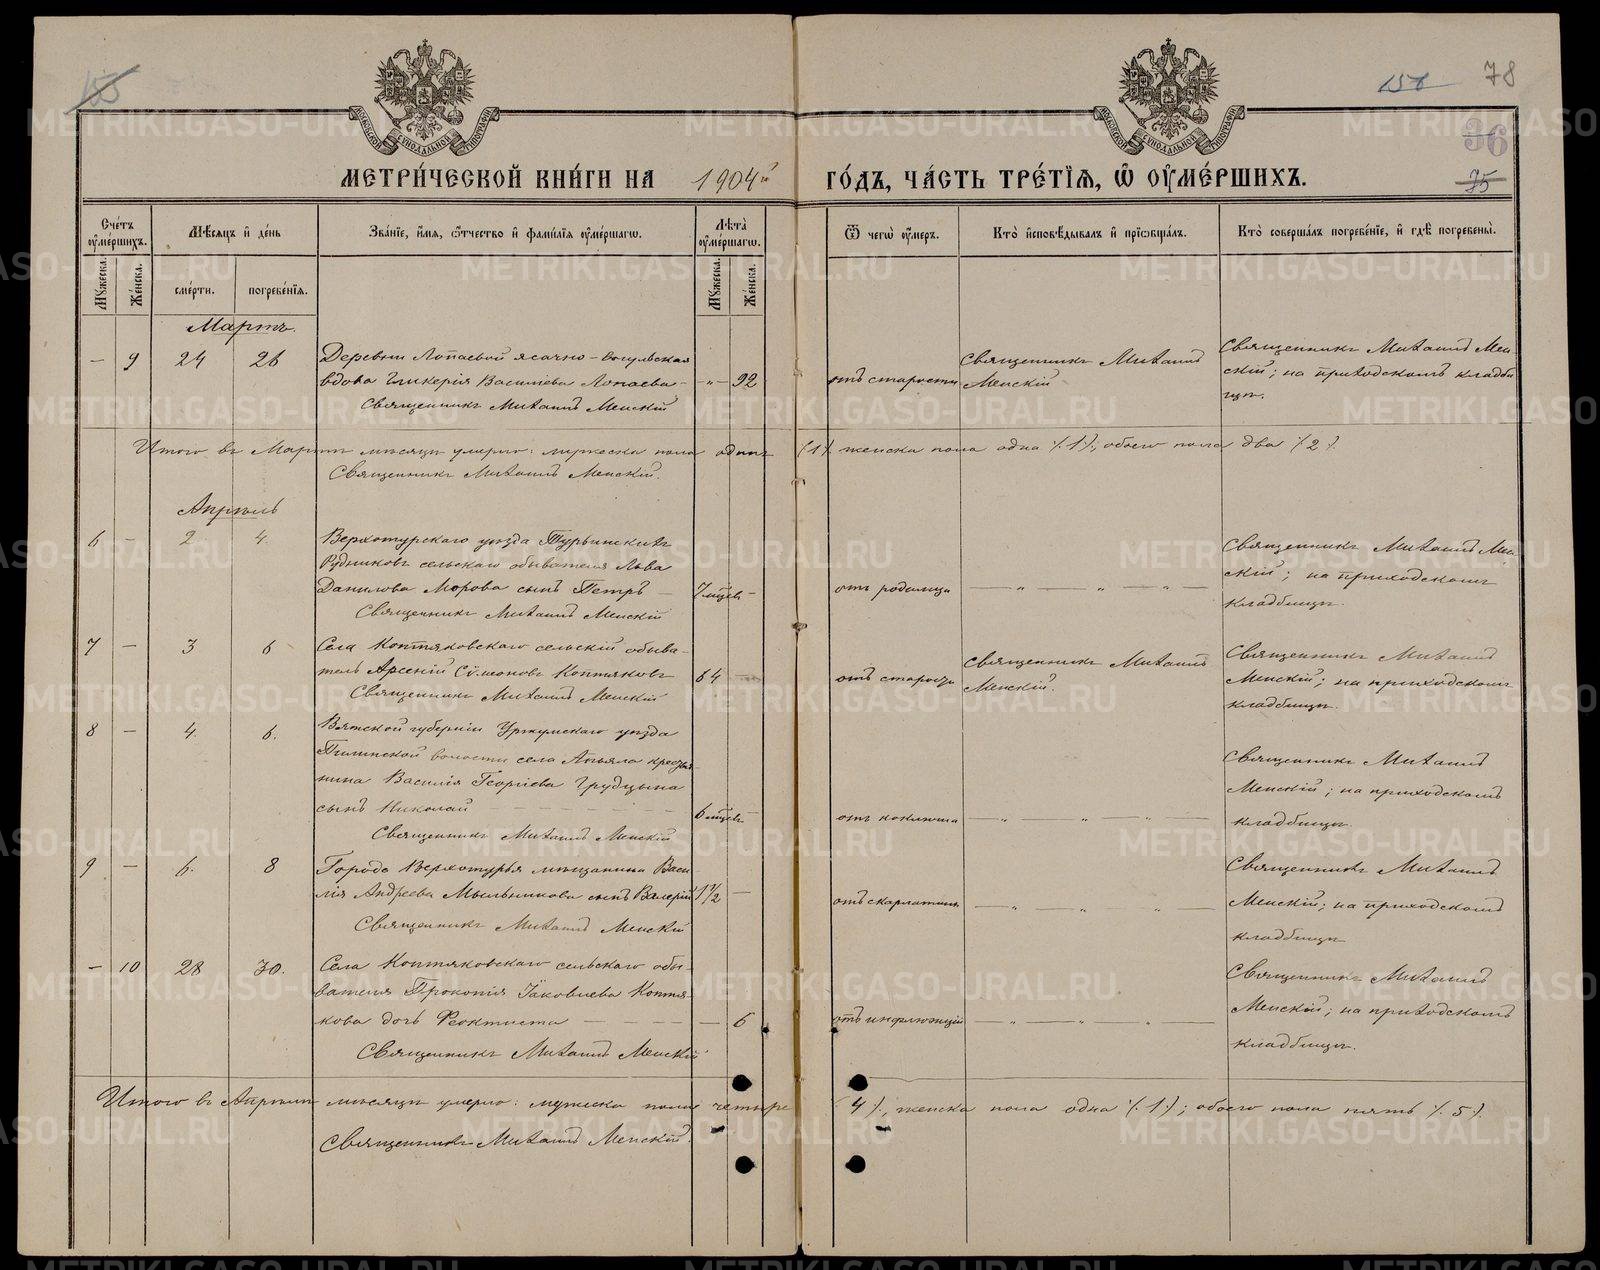 155
156 78
36
75
МОСКОВСКОЙ СѶНОДАЛЬНОЙ ТИПОГРАФІИ
МОСКОВСКОЙ СѶНОДАЛЬНОЙ ТИПОГРАФІИ
МЕТРИ́ЧЕСКОЙ КНИ́ГИ НА 1904й ГО́ДЪ, ЧА́СТЬ ТРЕ́ТІѦ, Ѽ ОУМЕ́РШИХЪ.
Сче́тъ оумершихъ.
Мѣ́сяцъ и де́нь
Зва́нїе, и́мя, ѻ́тчество и фами́лїя оуме́ршагѡ.
Лѣ́та оуме́ршагѡ.
Ѿ чегѡ̀ оу́меръ.
Кто̀ и́сповѣ́дывалъ и прїѡбща́лъ.
Кто̀ соверша́лъ погребе́нїе, и гдѣ̀ погребены̀.
Мꙋ́жеска. Же́нска. сме́рти. погребе́нїя. Мꙋ́жеска. Же́нска.
Мартъ.
— 9 24 26 Деревни Лопаевой ясачно-вогульская
вдова Гликерія Васильева Лопаева — „ — 92
Священникъ Михаилъ Менскій
отъ старости
Священникъ Михаилъ
Менскій
Священникъ Михаилъ Мен-
скій; на приходскомъ кладби
щѣ.
Итого въ Мартѣ мѣсяцѣ умерло: мужеска пола одинъ (1) женска пола одна /.1./, обоего пола два /.2./.
Священникъ Михаилъ Менскій.
Апрѣль
6 — 2 4. Верхотурскаго уѣзда Турьинскихъ
Рудниковъ сельскаго обывателя Льва
Данилова Морова сынъ Петръ — 7 мцев —
Священникъ Михаилъ Менскій
отъ родимца — „ — „ — „ —
Священникъ Михаилъ Мен-
скій; на приходскомъ
кладбищѣ.
7 — 3 6 Села Коптяковскаго сельскій обыва-
тель Арсеній Сѵмеоновъ Коптяковъ 64 —
Священникъ Михаилъ Менскій
отъ старости
Священникъ Михаилъ
Менскій.
Священникъ Михаилъ
Менскій; на приходскомъ
кладбищѣ.
8 — 4. 6. Вятской губерніи Уржумскаго уѣзда
волости села крестья-
нина Василія Георгіева Грудцына
сынъ Николай — — — — — 6 мцевъ —
Священникъ Михаилъ Менскій
отъ коклюша — „ — „ — „ —
Священникъ Михаилъ
Менскій; на приходскомъ
кладбищѣ.
9 — 6. 8 Города Верхотурья мѣщанина Васи-
лія Андреева Мыльникова сынъ Валерій 1 1/2 —
Священникъ Михаилъ Менскій
отъ скарлатины — „ — „ — „ —
Священникъ Михаилъ
Менскій; на приходскомъ
кладбищѣ
— 10 28 30. Села Коптяковскаго сельскаго обы-
вателя Прокопія Іаковлева Коптя-
кова дочь Феоктиста — — — — — 6
Священникъ Михаилъ Менскій
отъ инфлюэнціи — „ — „ — „ —
Священникъ Михаилъ
Менскій; на приходскомъ
кладбищѣ.
Итого въ Апрѣлѣ мѣсяцѣ умерло: мужеска пола четыре (4)., женска пола одна /.1./; обоего пола пять /.5./.
Священникъ Михаилъ Менскій.
METRIKI.GASO-URAL.RU